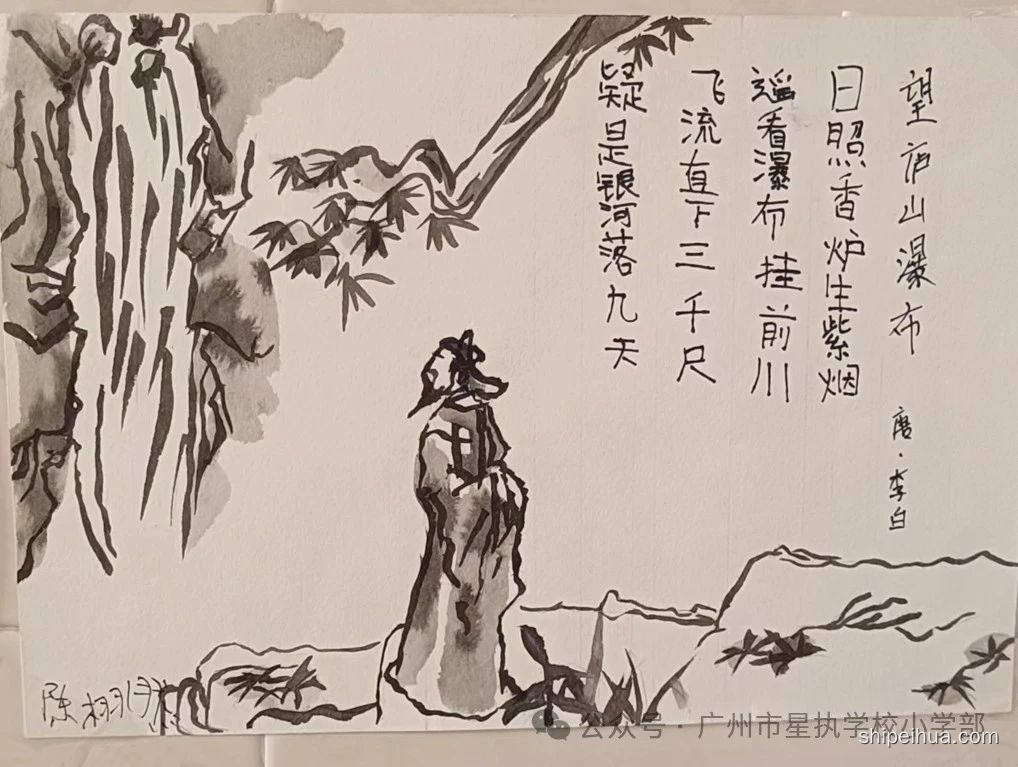 望庐山瀑布
唐·李白
日照香炉生紫烟
遥看瀑布挂前川
飞流直下三千尺
疑是银河落九天
公众号·广州市星执学校小学部
shipeihua.com